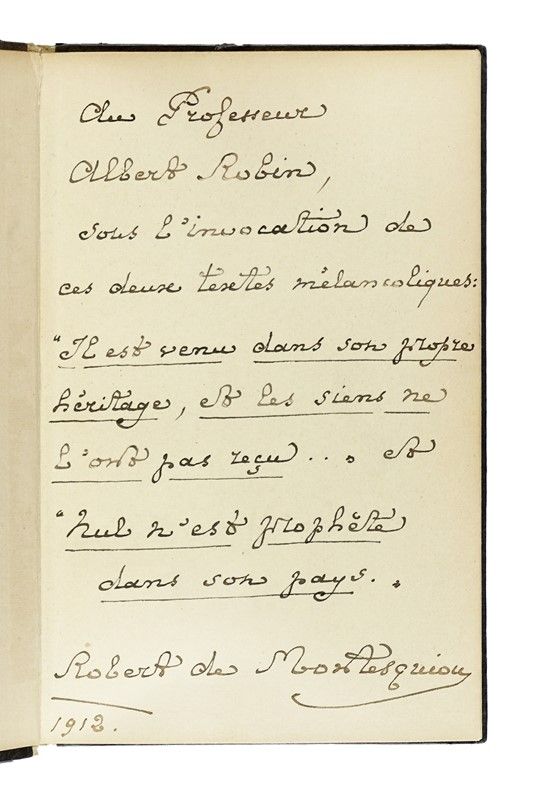 au Professeur
Albert Robin,
sous l'invocation de
ces deux textes mélancoliques:
"Il est venu dans son propre
héritage, et les siens ne
l'ont pas reçu... et
"Nul n'est prophète
dans son pays..
Robert de Montesquiou
1912.